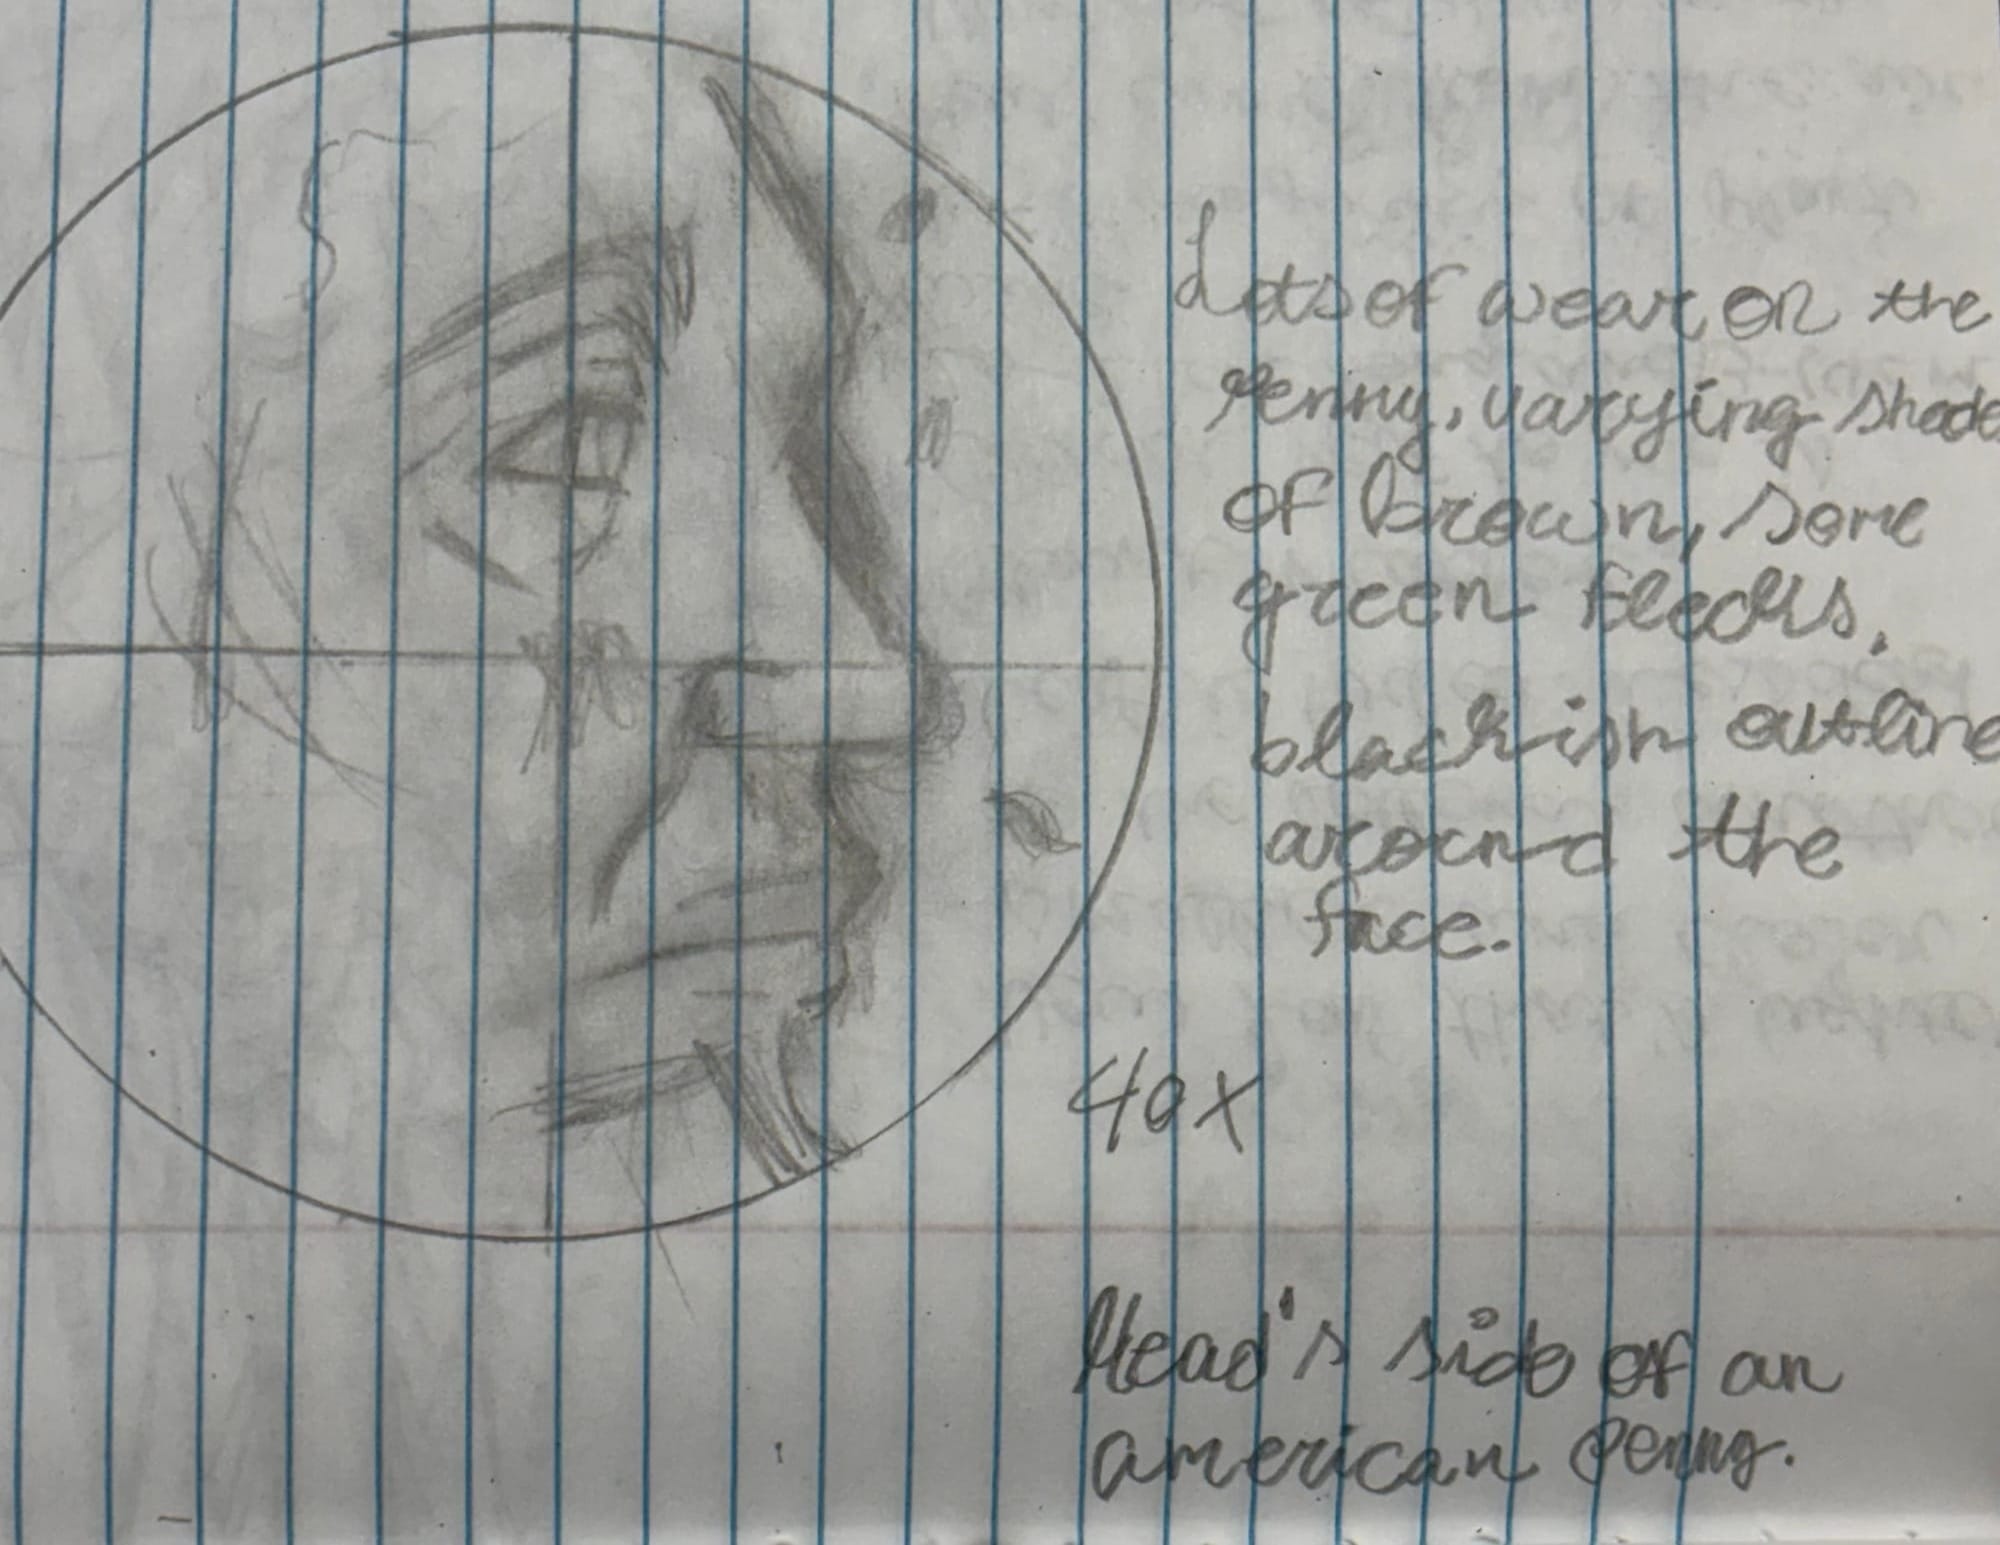 Lots of wear on the
Penny, varying shade
of brown, some
green flecks.
blackish outline
around the
face.
40x
Head's side of an
american penny.